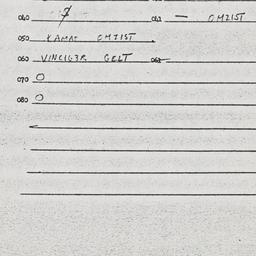 040 7 041 — OMZIST
050 KAMAT OMZIST
060 VINCIGER GELT 061
070 O
080 O